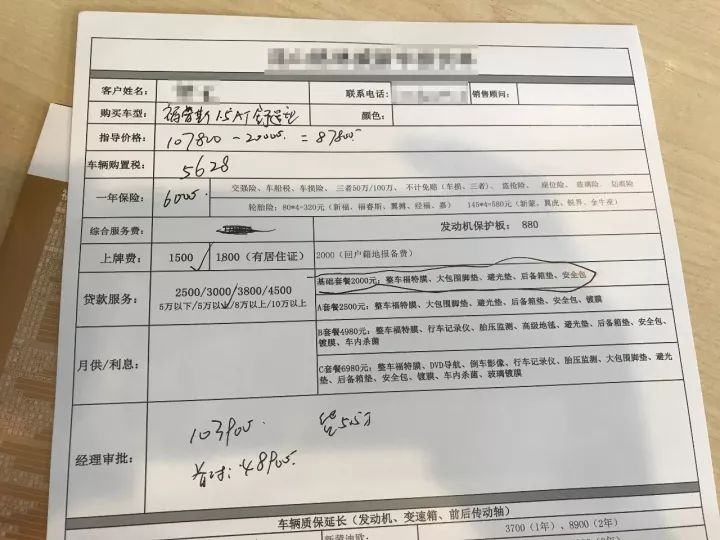 客户姓名: 联系电话: 销售顾问:
购买车型: 福睿斯 1.5AT 舒适型 颜色:
指导价格: 107800 - 20000. = 87800.
车辆购置税: 5628
一年保险: 6000. 交强险、车船税、车损险、三者50万/100万、不计免赔(车损、三者)、盗抢险、座位险、玻璃险、划痕险
轮胎险: 80*4=320元(新福、福睿斯、翼搏、经福、嘉) 145*4=580元(新蒙、翼虎、锐界、金牛座)
综合服务费: 发动机保护板: 880
上牌费: 1500 1800(有居住证) 2000(回户籍地报备费)
贷款服务: 2500/3000/3800/4500
5万以下/5万以上/8万以上/10万以上
基础套餐2000元: 整车福特膜、大包围脚垫、避光垫、后备箱垫、安全包
A套餐2500元: 整车福特膜、大包围脚垫、避光垫、后备箱垫、安全包、镀膜
B套餐4980元: 整车福特膜、行车记录仪、胎压监测、高级地毯、避光垫、后备箱垫、安全包、
镀膜、车内杀菌
月供/利息:
C套餐6980元: 整车福特膜、DVD导航、倒车影像、行车记录仪、胎压监测、大包围脚垫、避光
垫、后备箱垫、安全包、镀膜、车内杀菌、玻璃镀膜
经理审批: 103900. 贷5.5万
首付: 48900.
车辆质保延长(发动机、变速箱、前后传动轴)
新蒙迪欧 3700(1年), 8900(2年)